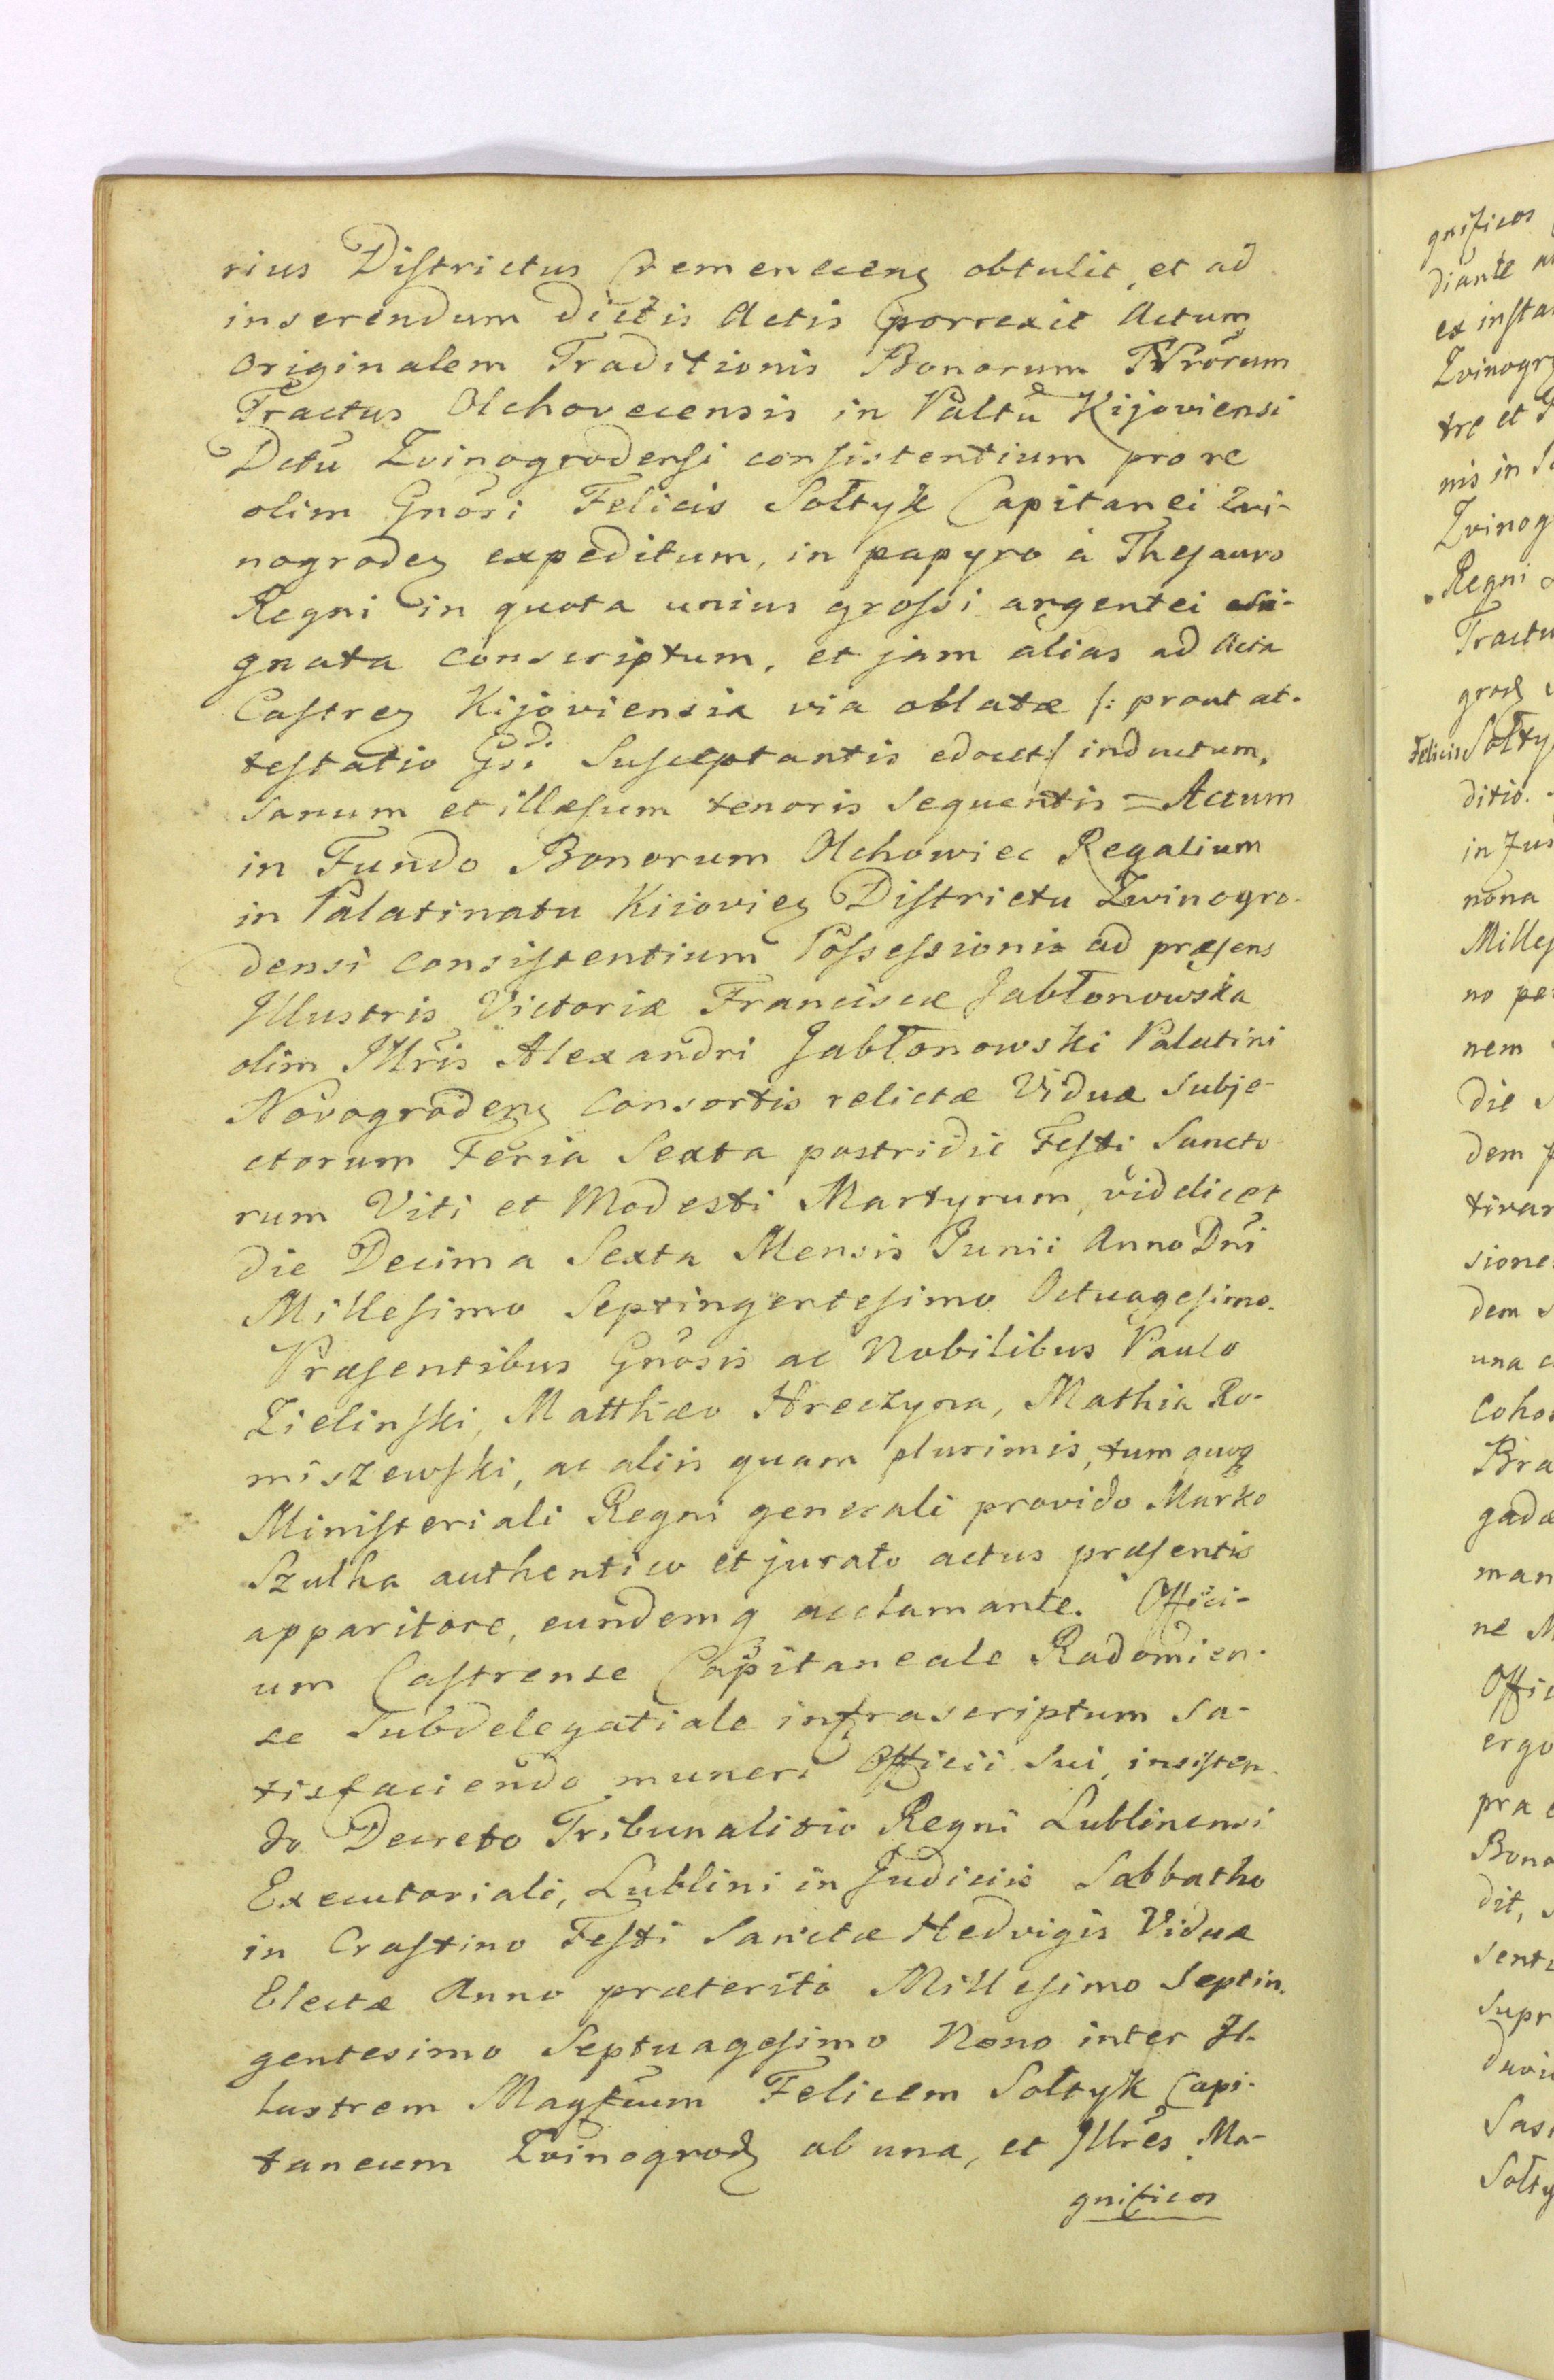 rius Districtus Cremenecens obtulit, et ad
inserendum dictis Actis porrexit Actum
Originalem Traditionis Bonorum
Tractus Olchovecensis in Paltu Kijoviensi
Dctu Zvinogrodensi consistentium pro re
olim Gnosi Felicis Sołtyk Capitanei Zvi-
nogroden expeditum, in papyro à Thesauro
Regni in quota unius grossi argentei
gnata conscriptum, et jam alias ad Acta
Castren Kijoviensia via oblatæ /: prout at-
testatio Gsi Susceptantis edocet :/ inductum,
sanum et illæsum tenoris sequentis = Actum
in Fundo Bonorum Olchowiec Regalium
in Palatinatu Kiiovien Districtu Zwinogro-
densi consistentium Possessionis ad præsens
Illustris Victoriæ Franciscæ Jabłonowska
olim Illris Alexandri Jabłonowski Palatini
Novogrodens Consortis relictæ Viduæ subje-
ctorum Feria Sexta postridie Festi Sancto-
rum Viti et Modesti Martyrum, videlicet
die Decima Sexta Mensis Junii Anno Dni
Millesimo Septingentesimo Octuagesimo.
Præsentibus Gnosis ac Nobilibus Paulo
Zielinski, Matthæo Hreczyna, Mathia Ro-
miszewski, ac aliis quam plurimis, tum quoq
Ministeriali Regni generali provido Marko
Szulha authentico et jurato actus præsentis
apparitore, eundemq acclamante. Offici-
um Castrense Capitaneale Radomien-
se Subdelegatiale infrascriptum sa-
tisfaciendo muneri Officii Sui, insisten-
do Decreto Tribunalitio Regni Lublinensi
Executoriali, Lublini in Judiciis Sabbatho
in Crastino Festi Sanctæ Hedvigis Viduæ
Electæ Anno præterito Millesimo Septin-
gentesimo Septuagesimo Nono inter Il-
lustrem Magfcum Felicem Sołtyk Capi-
taneum Zvinogrod ab una, et Illres Ma-
gnificos
gnificos
diante
ex insta
Zvinogr
tre et
nis in
Zvinog
Regni
Tractu
grod
Felicis Sołty
ditio.
in Jus
nona
Milles
no per
nem
die
dem
tivar
sione
dem
una
Cohor
Bra
gadæ
man
ne
Offic
ergo
præ
Bono
dit,
sent
Supr
Sas
Sołty